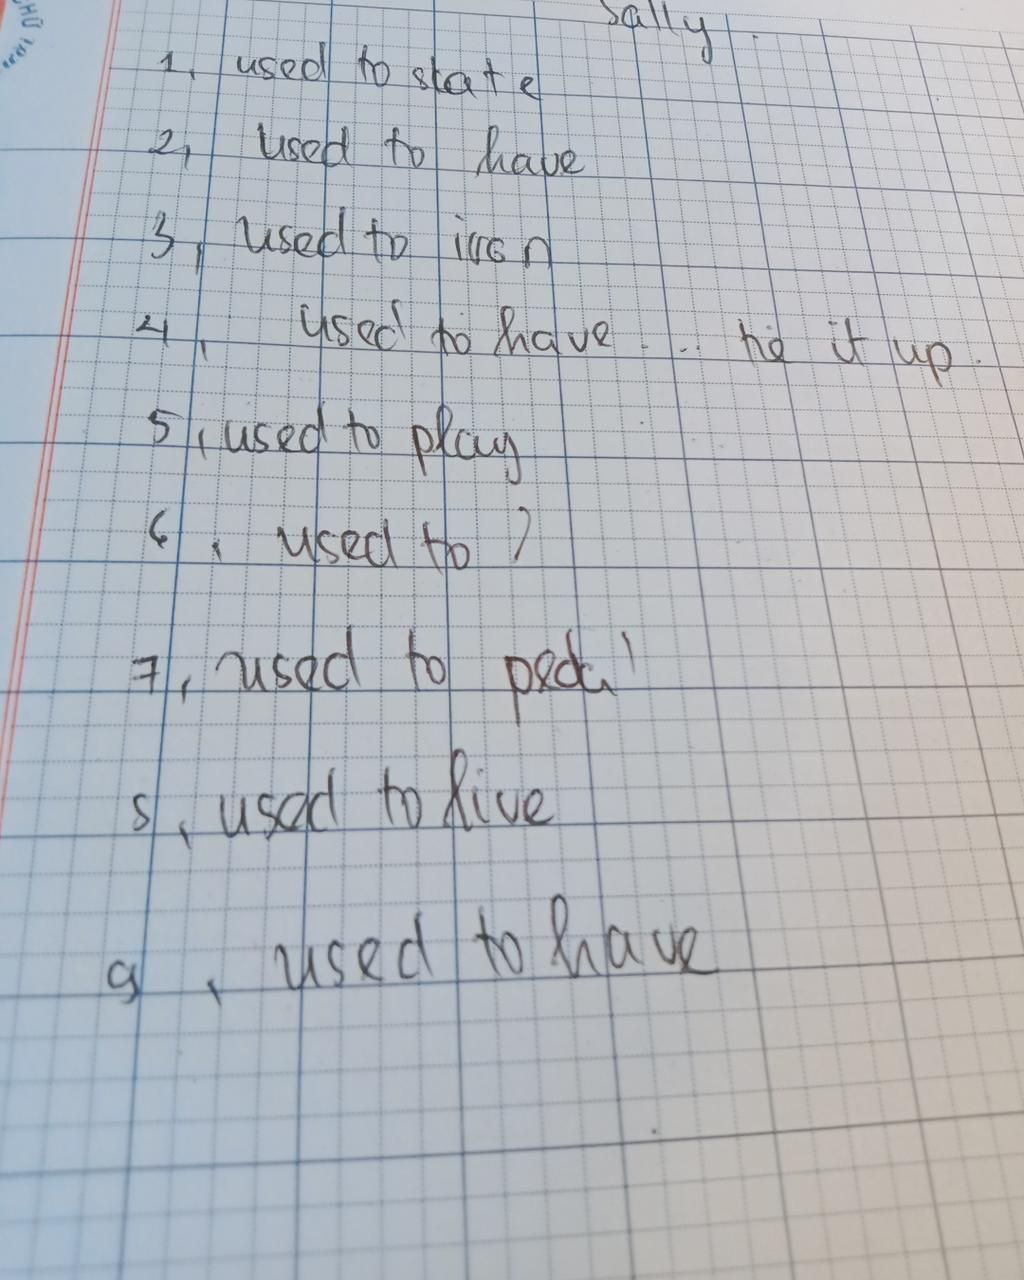 Sally
1, used to state
2, used to have
3, used to iron
4, used to have ... tie it up.
5, used to play
6, used to ?
7, used to
8, used to live
9, used to have